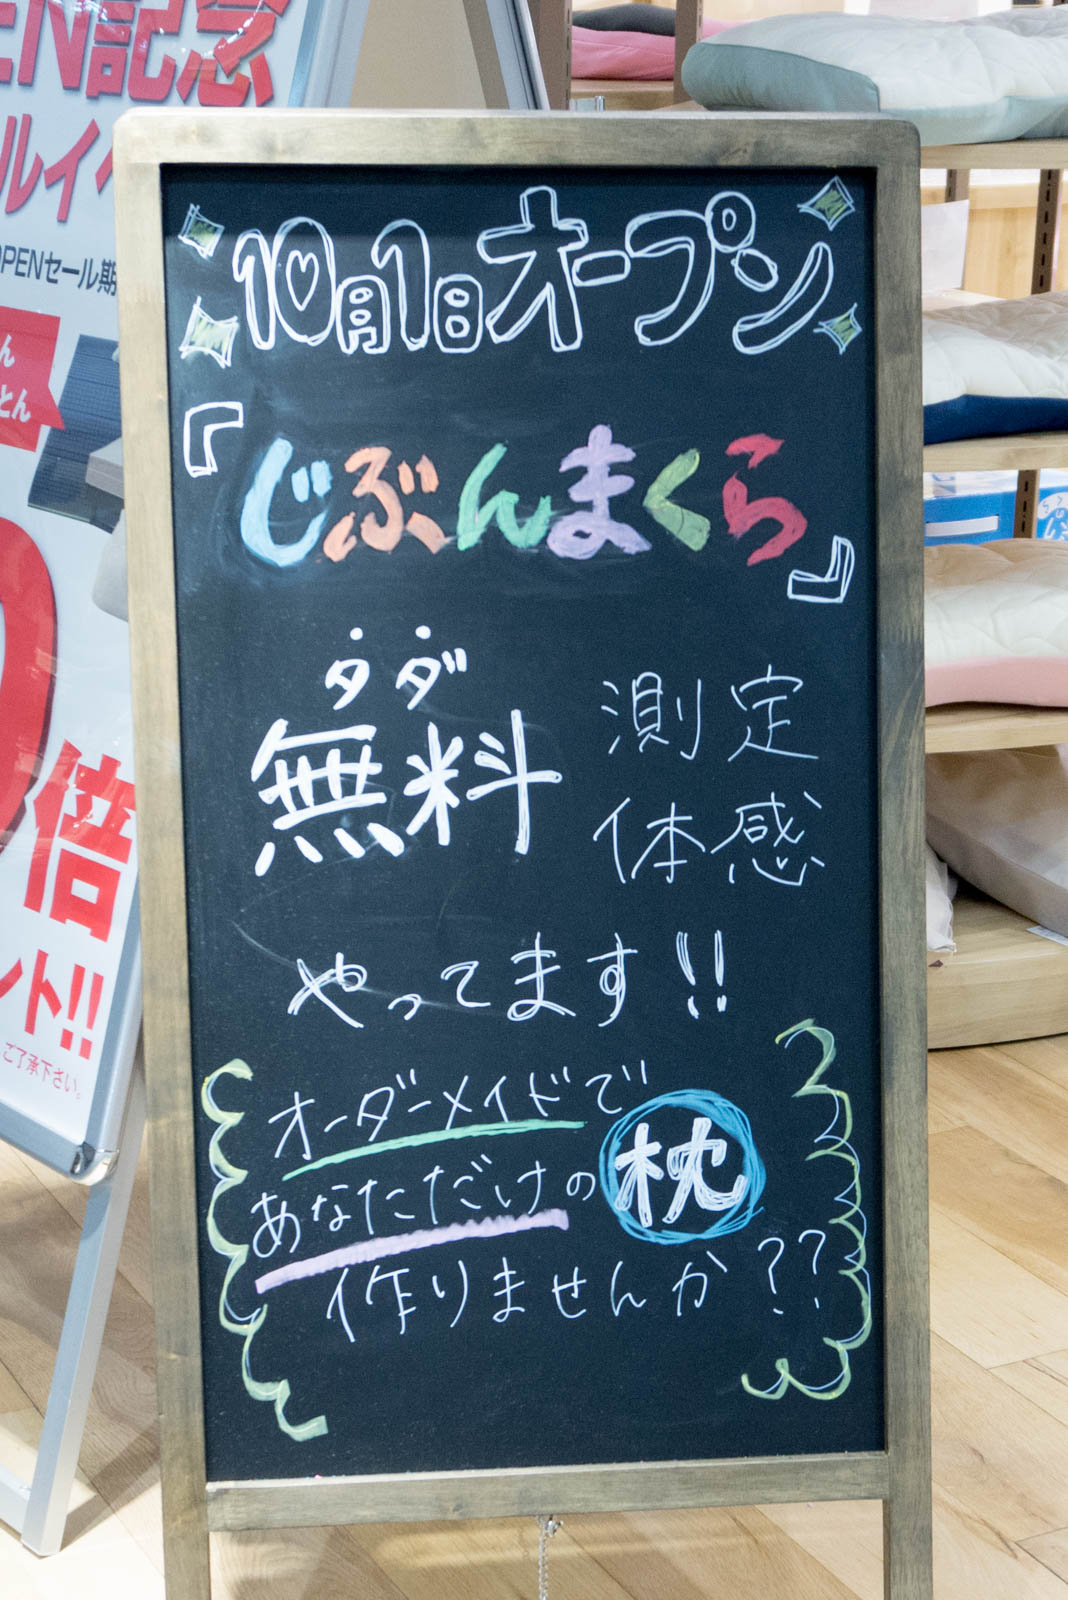 EN記念
ルイベ
OPENセール期
ん
とん
0倍
ント!!
ご了承下さい。
10月1日オープン
『じぶんまくら』
タダ
無料
測定
体感
やってます!!
オーダーメイドで
あなただけの枕
作りませんか??